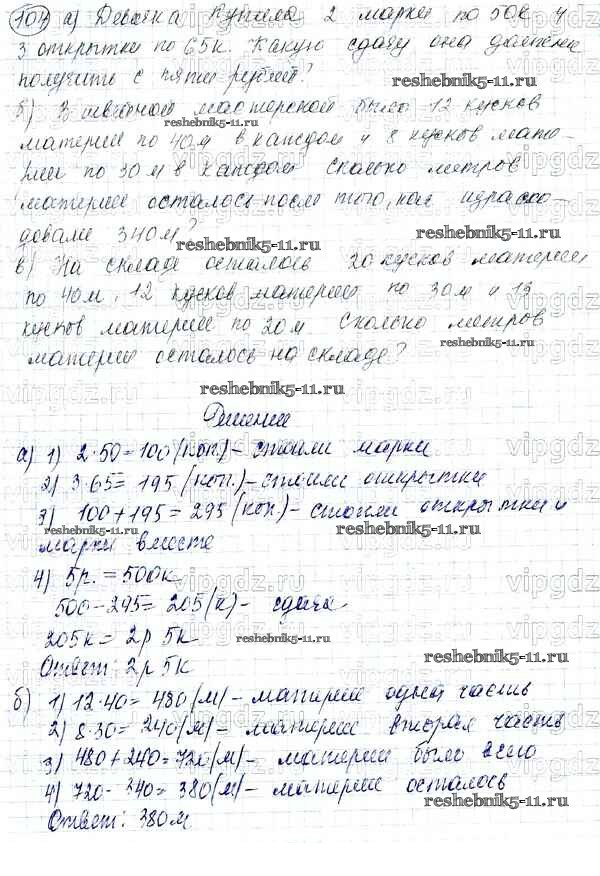 107 а) Девочка купила 2 марки по 50к и
3 открытки по 65к. Какую сдачу она должна
получить с пяти рублей?
reshebnik5-11.ru
б) В швейной мастерской было 12 кусков
reshebnik5-11.ru
материи по 40м в каждом и 8 кусков мате-
рии по 30м в каждом Сколько метров
материи осталось после того, как израсхо-
довали 340м?
reshebnik5-11.ru
в) На складе осталось 20 кусков материи
по 40м, 12 кусков материи по 30м и
кусков материи по 20м Сколько метров
reshebnik5-11.ru
материи осталось на складе?
reshebnik5-11.ru
Решение
а) 1) 2·50=100(коп.)-стоили марки
2) 3·65=195(коп.)-стоили открытки
3) 100+195=295(коп)-стоили открытки и
reshebnik5-11.ru
reshebnik5-11.ru
марки вместе
4) 5р.=500к
500-295=205(к)- сдача
205к=2р 5к
reshebnik5-11.ru
Ответ: 2р 5к
б) 1) 12·40=480(м)-материи одна часть
2) 8·30=240(м)-материи вторая часть
3) 480+240=720(м)-материи было всего
4) 720-340=380(м)-материи осталось
reshebnik5-11.ru
reshebnik5-11.ru
Ответ: 380м
vipgdz.ru